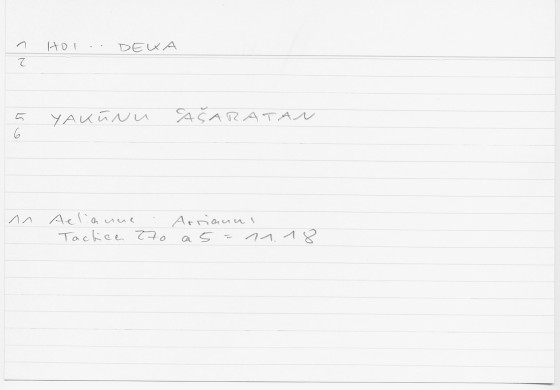 1 HOI .. DEKA
2
5 YAKŪNU ʿAŠARATAN
6
11 Aelianus : Arrianus
Tactica 270 a 5 = 11.18